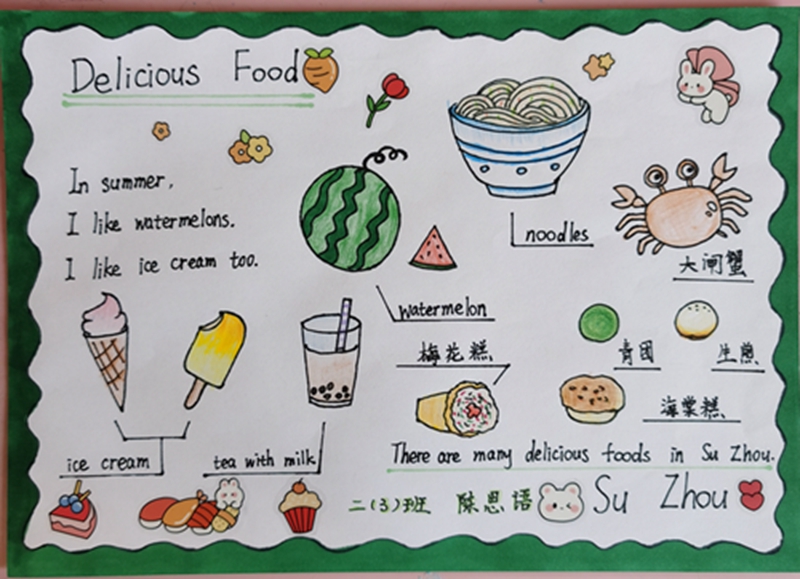 Delicious Food
In summer,
I like watermelons.
I like ice cream too.
noodles
大闸蟹
watermelon
梅花糕
青团
生煎
海棠糕
ice cream
tea with milk
There are many delicious foods in Su Zhou.
二(3)班 陈思语
Su Zhou